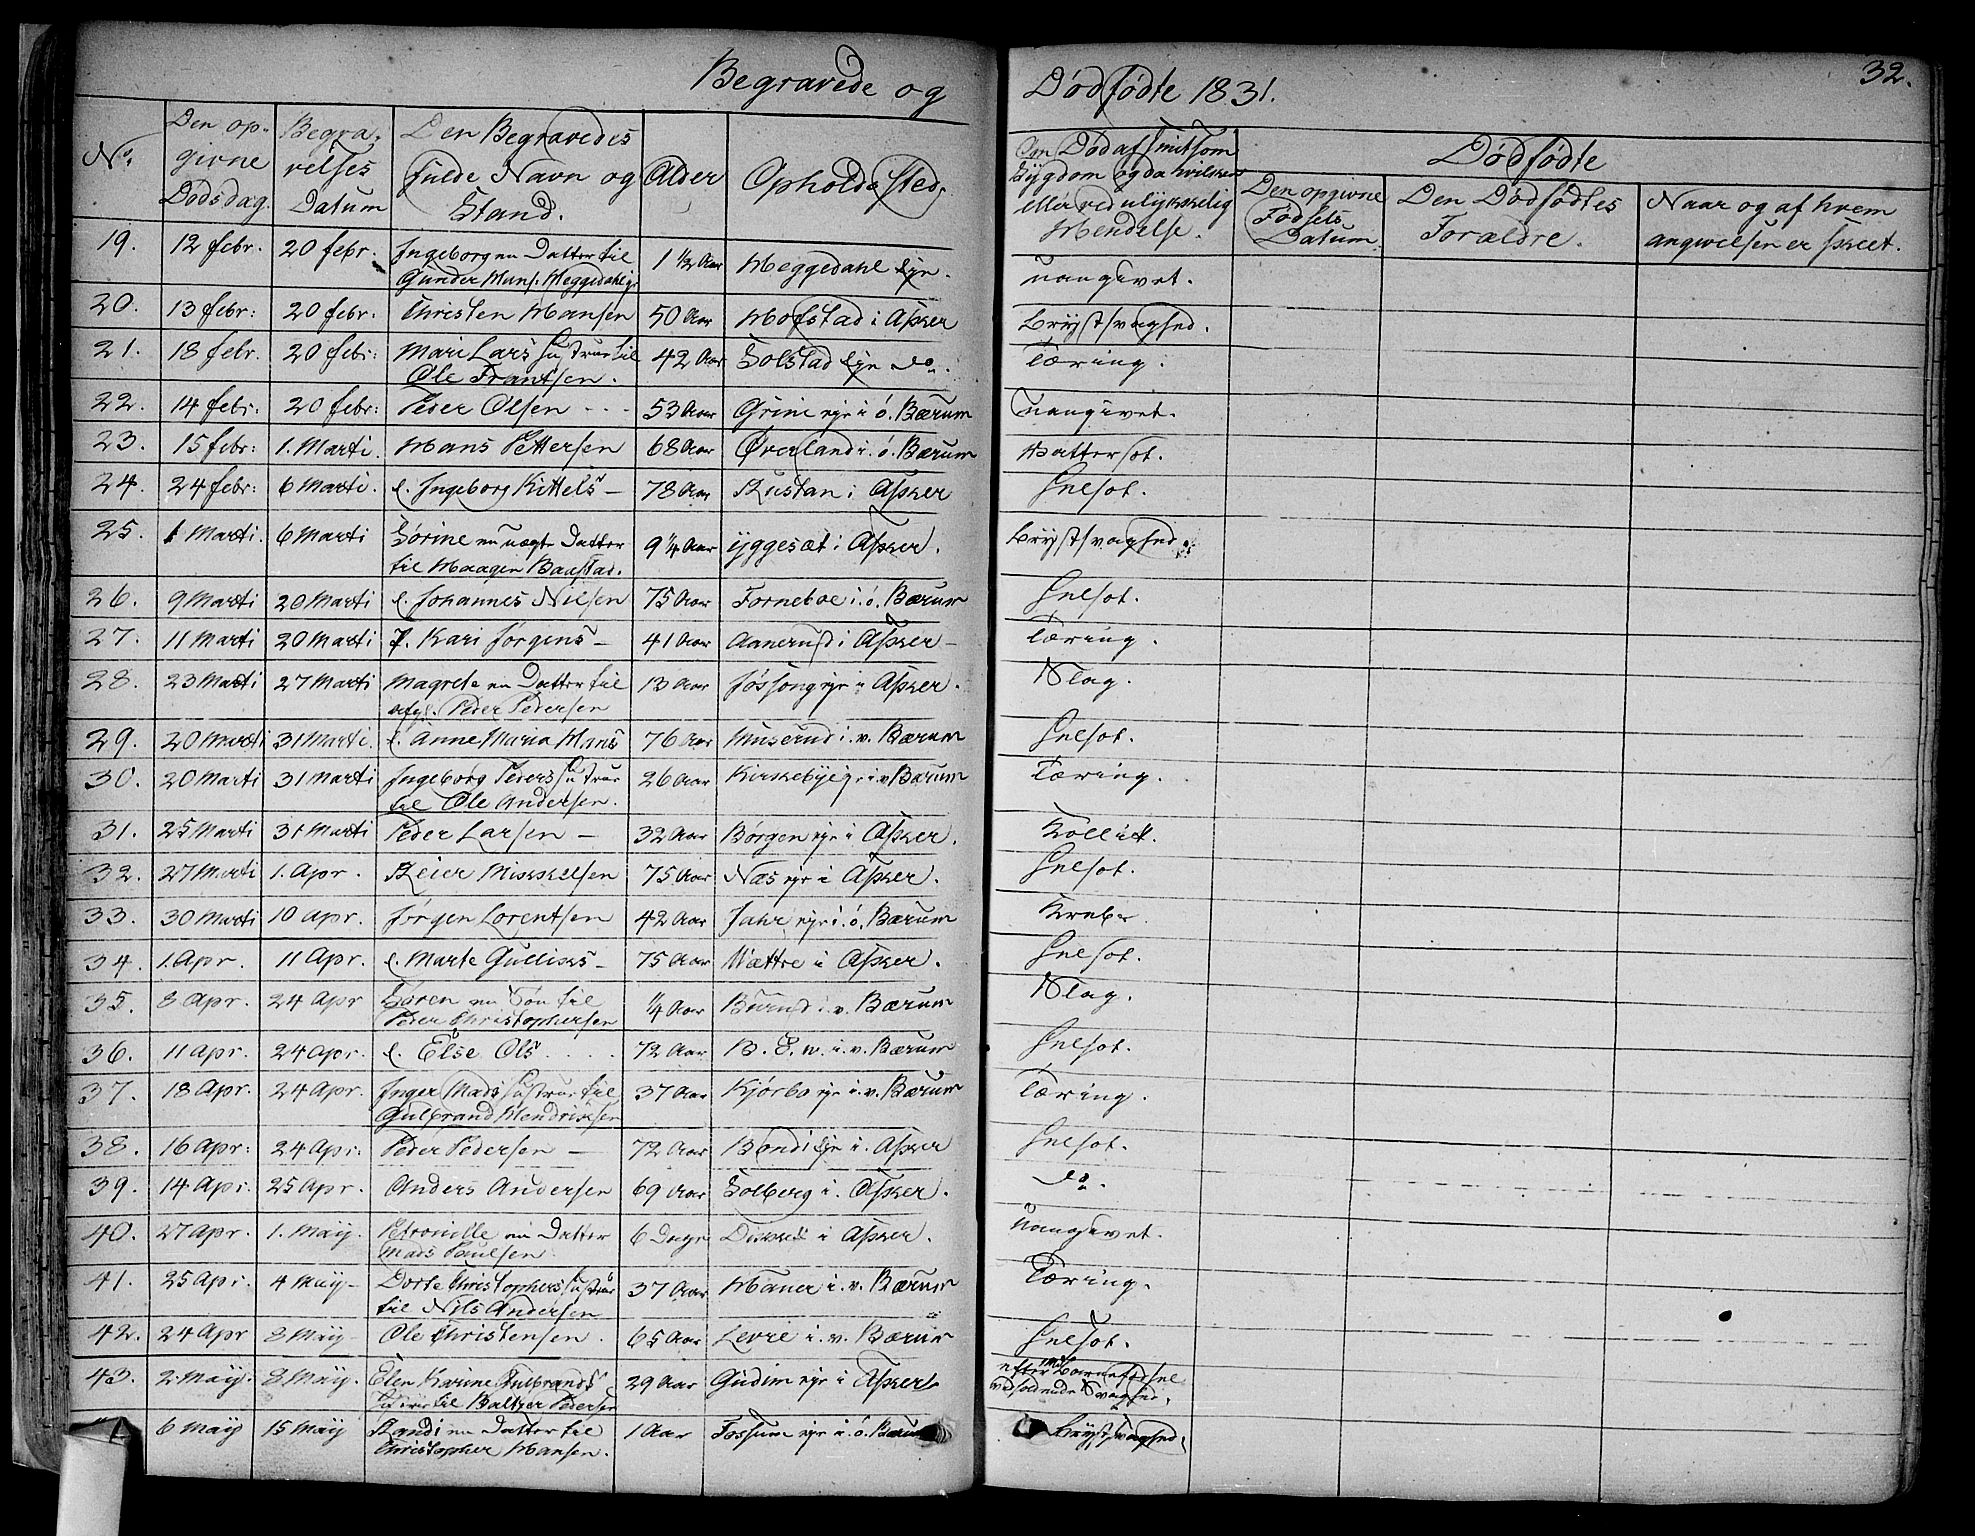 Begravede og Dødfødte 1831. 32.
No. Den opgivne Dødsdag. Begravelses Datum Den Begravedes fulde Navn og Stand. Alder Opholdssted. Om Død af smitsom Sygdom og da hvilken eller ved ulykkelig Hendelse. Dødfødte
Den opgivne Fødsels Datum. Den Dødfødtes Forældre. Naar og af hvem angivelsen er skeet.
19. 12 febr. 20 febr. Ingeborg en Datter til 1½ Aar Heggedahl Eje. uangivet.
Gunder Hans: Heggedahlej
20. 13 febr: 20 febr. Christen Hansen 50 Aar Hofstad i Asker Brystsvaghed.
21. 18 febr. 20 febr: Mari Lars Hustrue til 42 Aar Solstad Eje do. Tæring.
Ole Frantsen.
22. 14 febr: 20 febr: Peder Olsen 53 Aar Grine eje i ö. Bærum uangivet.
23. 15 febr: 1. Marti. Hans Pettersen 68 Aar Øverland i. ö. Bærum Vattersot.
24. 24 febr: 6 Marti. E. Ingeborg Kittels 78 Aar Rustan i Asker Helsot.
25. 1 Marti. 6 Marti Sørine en uægte Datter 9¼ Aar yggesæt i Asker. Brystsvaghed.
til Haagen Baastad.
26. 9 Marti 20 Marti E. Johannes Nilsen 75 Aar Forneboe i. ö. Bærum Helsot.
27. 11 Marti 20 Marti P. Kari Jørgens 41 Aar Aanerud i Asker Tæring.
28. 23 Marti 27 Marti Magrete en Datter til 13 Aar Jøssong eje i Asker. Slag.
afg. Peder Pedersen
29. 20 Marti 31 Marti. E. Anne Maria Hans 76 Aar Muserud i. v. Bærum Helsot.
30. 20 Marti 31 Marti Ingeborg Peders Hustrue 26 Aar Kirkebyeje i v Bærum Tæring.
til Ole Andersen.
31. 25 Marti 31 Marti Peder Larsen 32 Aar Børgen eje i Asker. Kollik.
32. 27 Marti 1. Apr. Reier Mikkelsen 75 Aar Næs eje i Asker. Helsot.
33. 30 Marti 10 Apr. Jørgen Lorentsen 42 Aar Jahr eje i. ö. Bærum Kreb
34. 1. Apr. 11 Apr. E. Marte Gulliks 75 Aar Nættre i Asker. Helsot.
35. 8 Apr. 24 Apr Søren en Søn til ¼ Aar Burud i. v. Bærum Slag.
Peder Christophersen
36. 11 Apr. 24 Apr. E. Else Ols 72 Aar B. E. v. i. v. Bærum Helsot.
37. 18 Apr. 24 Apr. Inger Mads Hustrue til 37 Aar Kjørbo eje i. v. Bærum Tæring.
Gulbrand Hendriksen
38. 16 Apr: 24 Apr: Peder Pedersen 72 Aar Bondi Eje i. Asker Helsot.
39. 14 Apr. 25 Apr. Anders Andersen 69 Aar Solberg i. Asker. do.
40. 27 Apr. 1. May. Petronille en Datter 6 Dage Dikkud i Asker. uangivet.
Mads Paulsen
41. 25 Apr. 4 May Dorte Christophers Hustrue 37 Aar Hauer i. v. Bærum Tæring.
til Nils Andersen
42. 24 Apr 8 May Ole Christensen. 65 Aar Levre i. v. Bærum Helsot.
43. 2. May. 8 May. Elen Karine Gulbrands 29 Aar Gudim eje i Asker efter Barnefødsel
Hustrue til Baltzer Pedersen Svaghed.
6 May 15 May Randi en Datter til 1 Aar Fossum eje i. ö. Bærum Brystsvaghed.
Christopher Hansen.